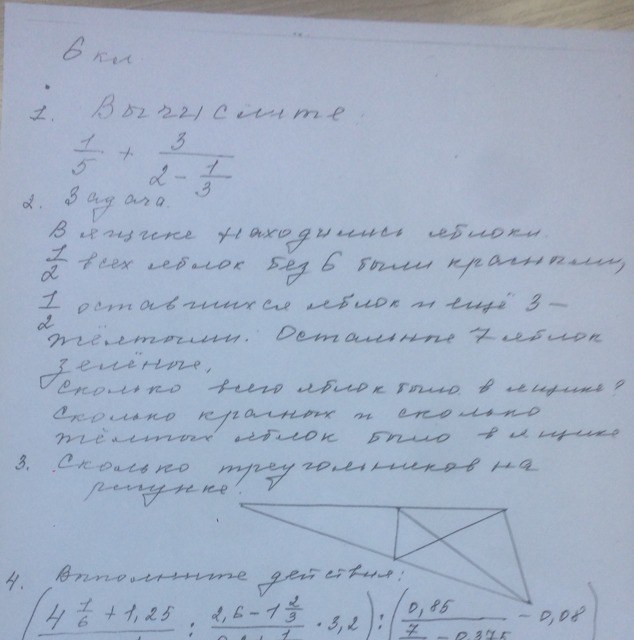 6 кл
1. Вычислите:
1/5 + 3/(2 - 1/3)
2. Задача.
В ящике находились яблоки.
1/2 всех яблок без 6 были красными,
1/2 оставшихся яблок и ещё 3 -
жёлтыми. Остальные 7 яблок
зелёные.
Сколько всего яблок было в ящике?
Сколько красных и сколько
жёлтых яблок было в ящике
3. Сколько треугольников на
рисунке.
4. Выполните действия:
( 4 1/6 + 1,25 : 2,6 - 1 2/3 · 3,2 ) : ( 0,85 - 0,08 )
7 - 0,375